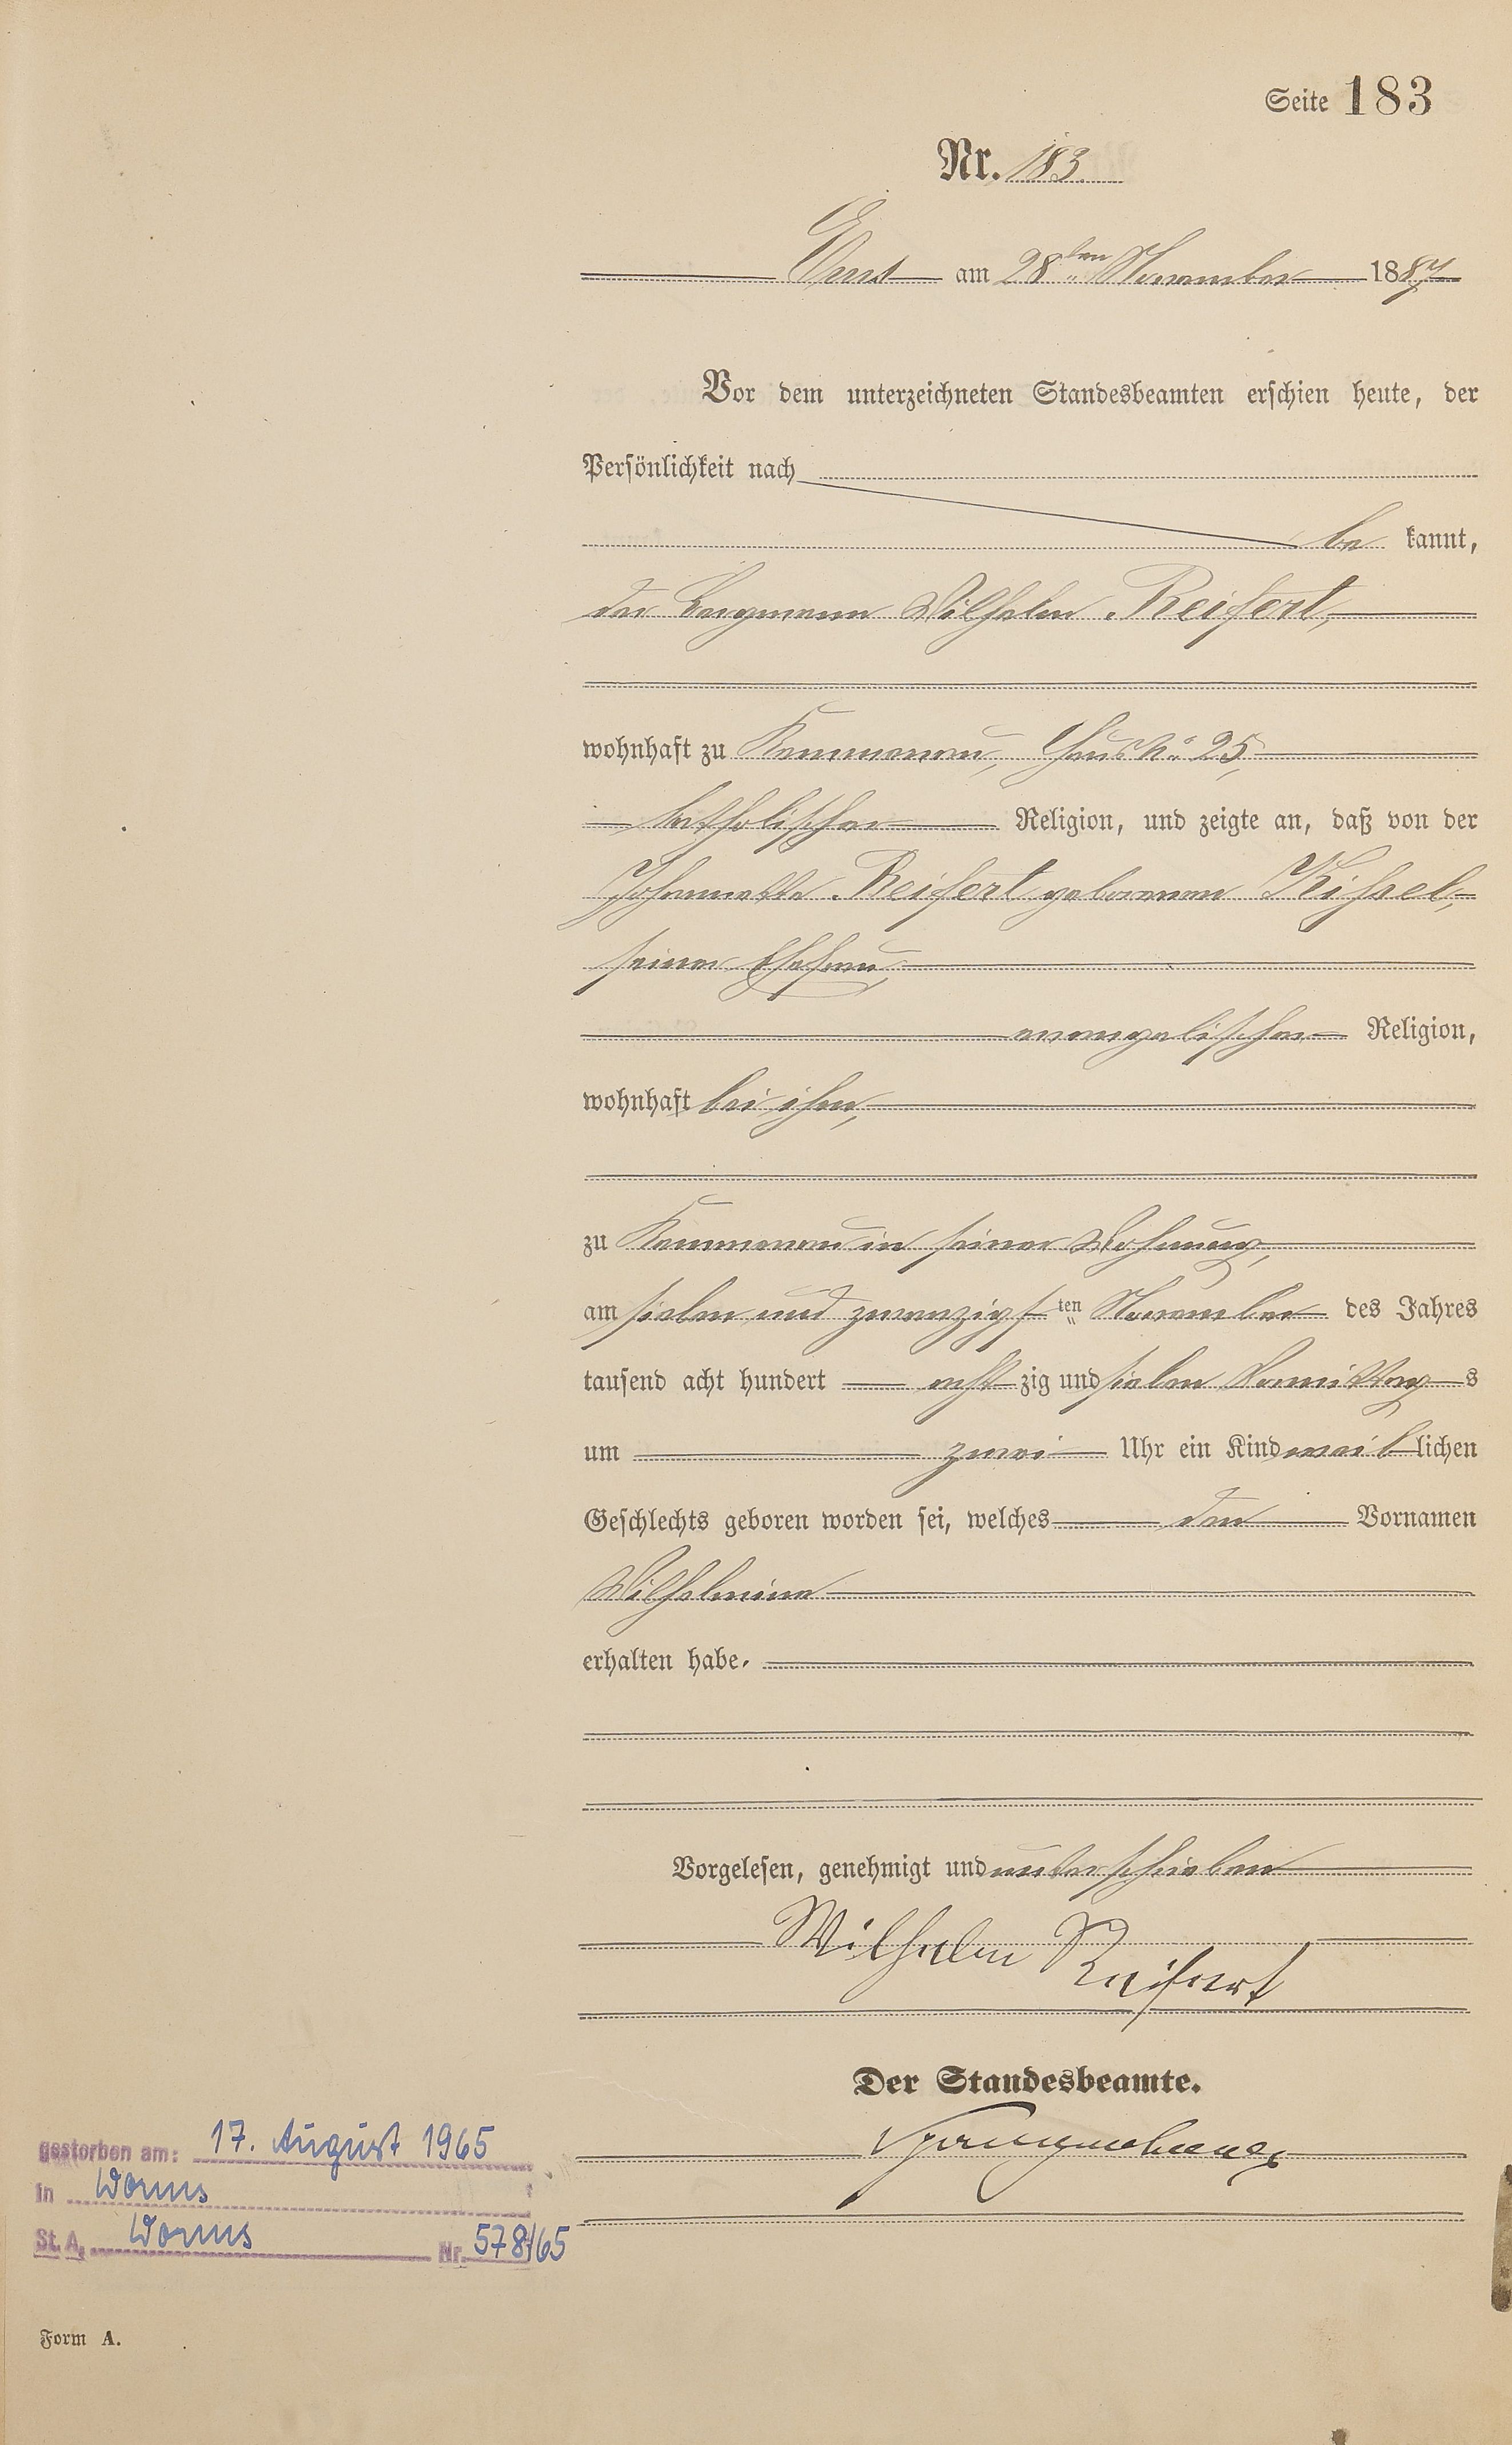 Seite 183
Nr. 183.
Ems am 28ten November 1887
Vor dem unterzeichneten Standesbeamten erschien heute, der
Persönlichkeit nach
be kannt,
der Bergmann Wilhelm Reifert,
wohnhaft zu Kemmenau, Haus No 25,
katholischer Religion, und zeigte an, daß von der
Johannette Reifert geborenen Kissel,
seiner Ehefrau,
evangelischer Religion,
wohnhaft bei ihm,
zu Kemmenau in seiner Wohnung,
am sieben und zwanzigsten November des Jahres
tausend acht hundert acht zig und sieben Vormittag s
um zwei Uhr ein Kind weib lichen
Geschlechts geboren worden sei, welches den Vornamen
Wilhelmine
erhalten habe.
Vorgelesen, genehmigt und unterschrieben
Wilhelm Reifert
Der Standesbeamte.
gestorben am: 17. August 1965
in Worms
St. A. Worms Nr. 578/65
Form A.